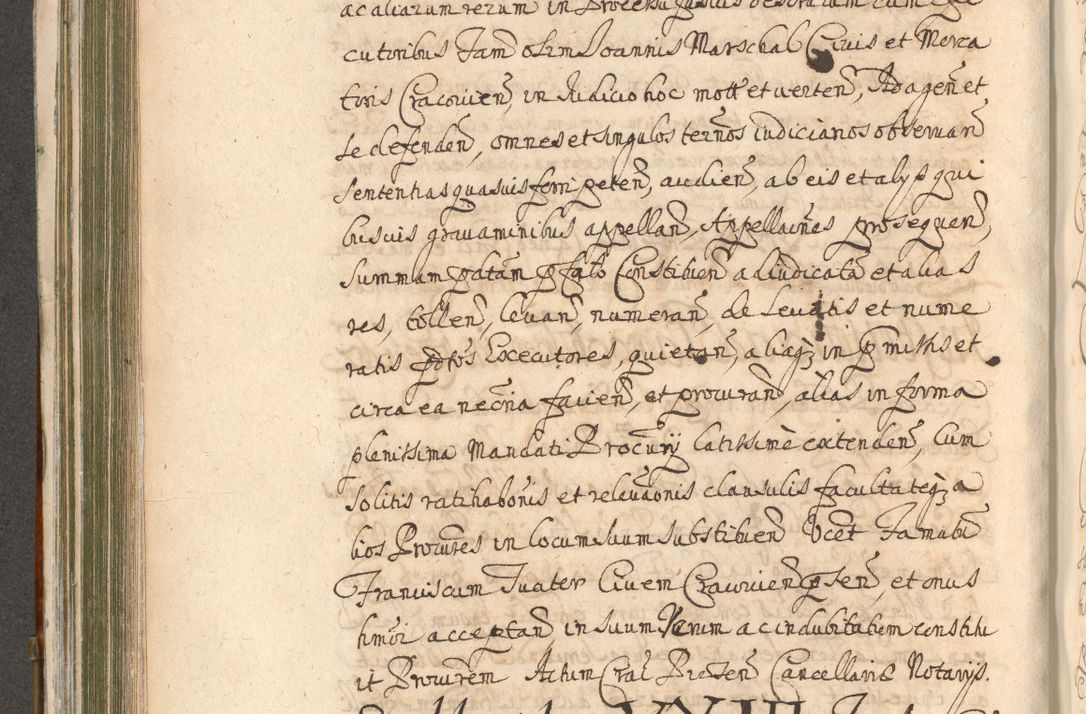 ac aliarum rerum in
cutoribus Famd olim Joannis Marschal Civis et Merca
toris Cracovien, in Judicio hoc mott et verten, Ad agen et
se defenden, omnes et singulos termos iudiciarios observan
sententias quasvis ferri peten, audien, ab eis et alys qui
busvis gravaminibus appellan, Appellaones prosequen,
summam pstam Constituen adiudicata et alias
res, tollen, levan, numeran, de levatis et nume
ratis pdtos Exceutores, quietan, aliaqz in pmissis et
circa ea necria facien, et procuran, alias in forma
plenissima Mandati Procury latissime extenden, Cum
solitis ratihabonis et relevaonis clausulis facultateqz a
lios Procures in locum suum substituen Vcet Famabm
Franciscum Tuater Civem Cracovien psen, et onus
hmoi acceptan in suum verum ac indubitatum constitu
it Procurem Actum Crac Presen Cancellariae Notarys.